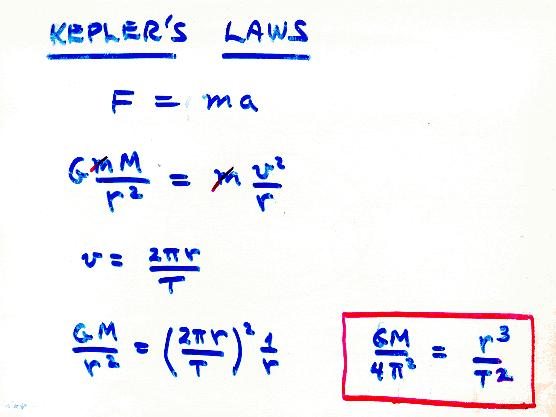 KEPLER'S LAWS
F = ma
GmM/r² = m v²/r
v = 2πr/T
GM/r² = (2πr/T)² 1/r
GM/4π² = r³/T²